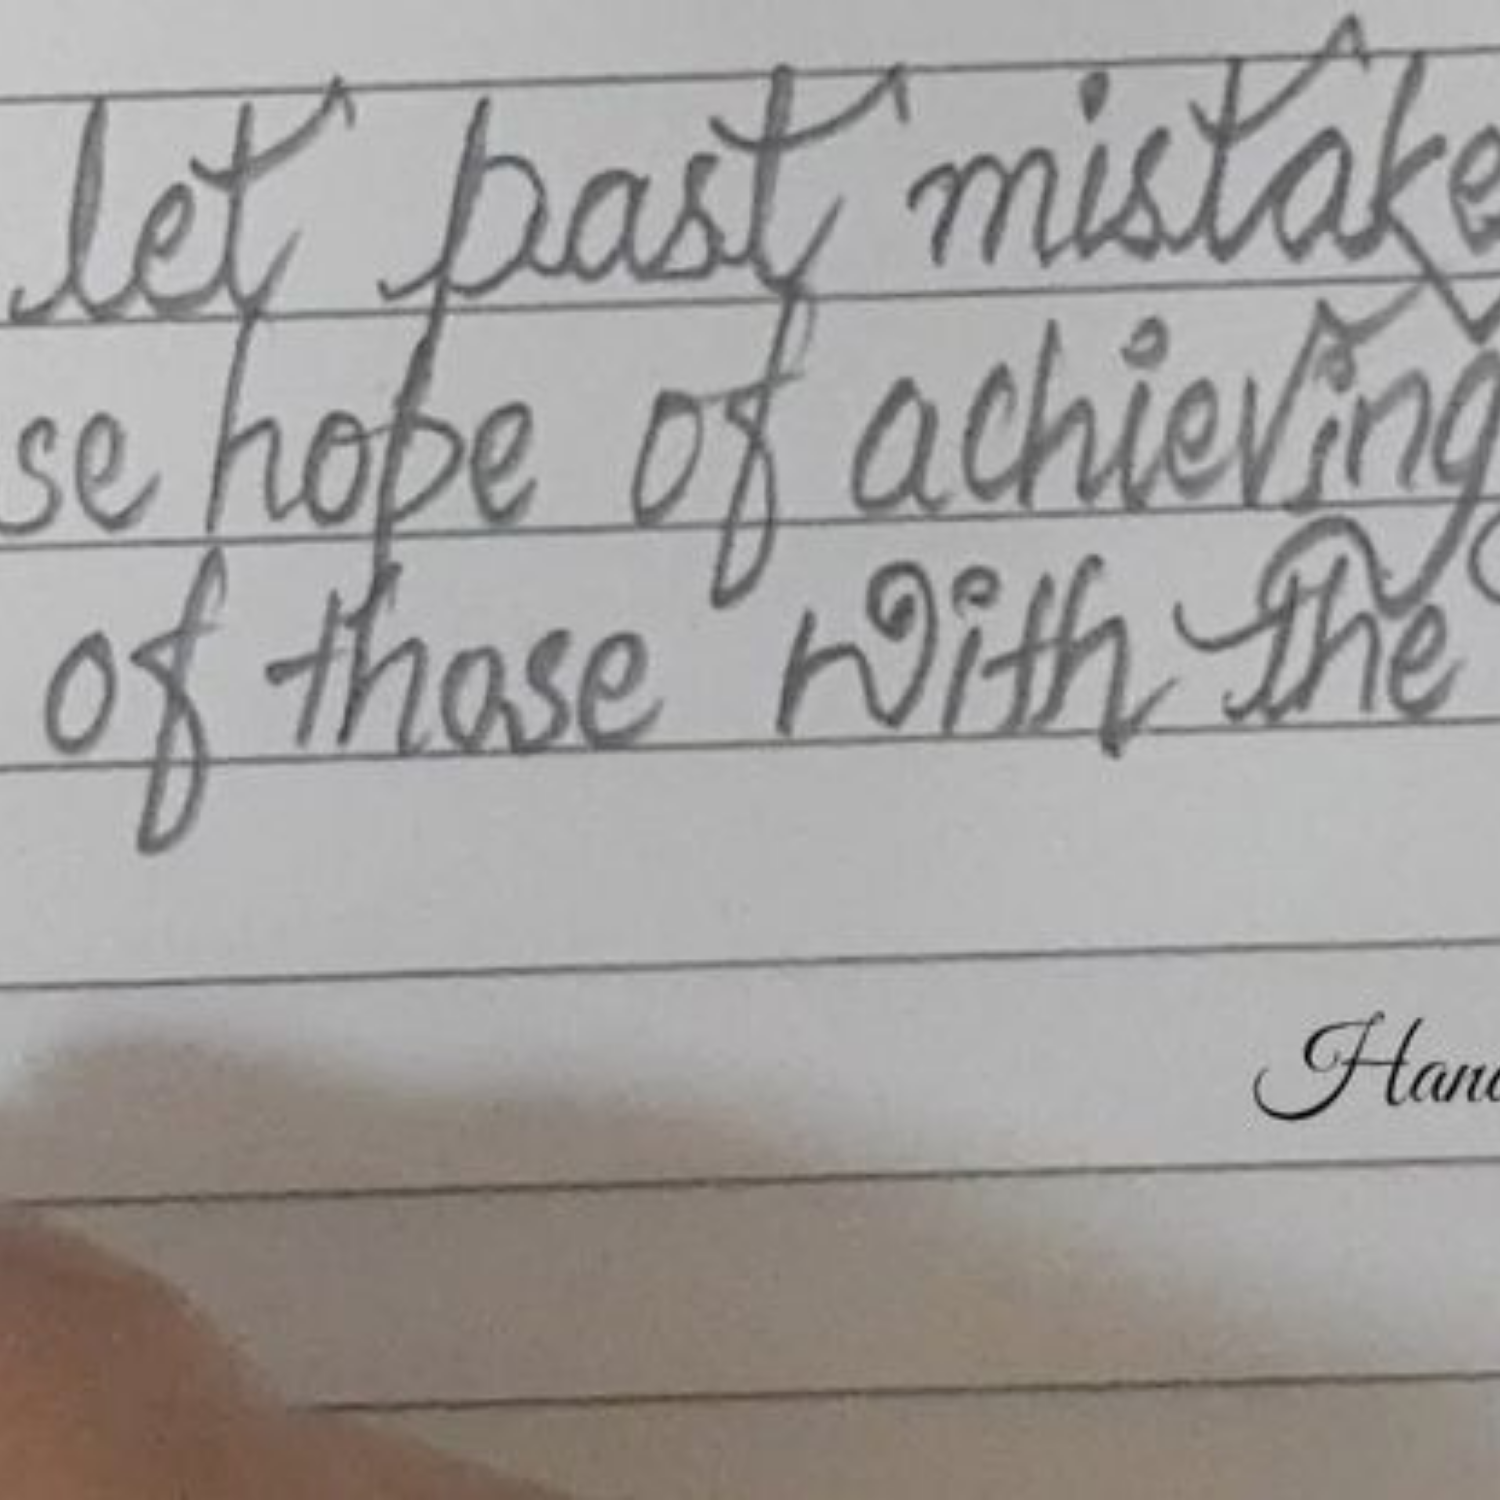 let past mistake
se hope of achieving
of those with the
Hand